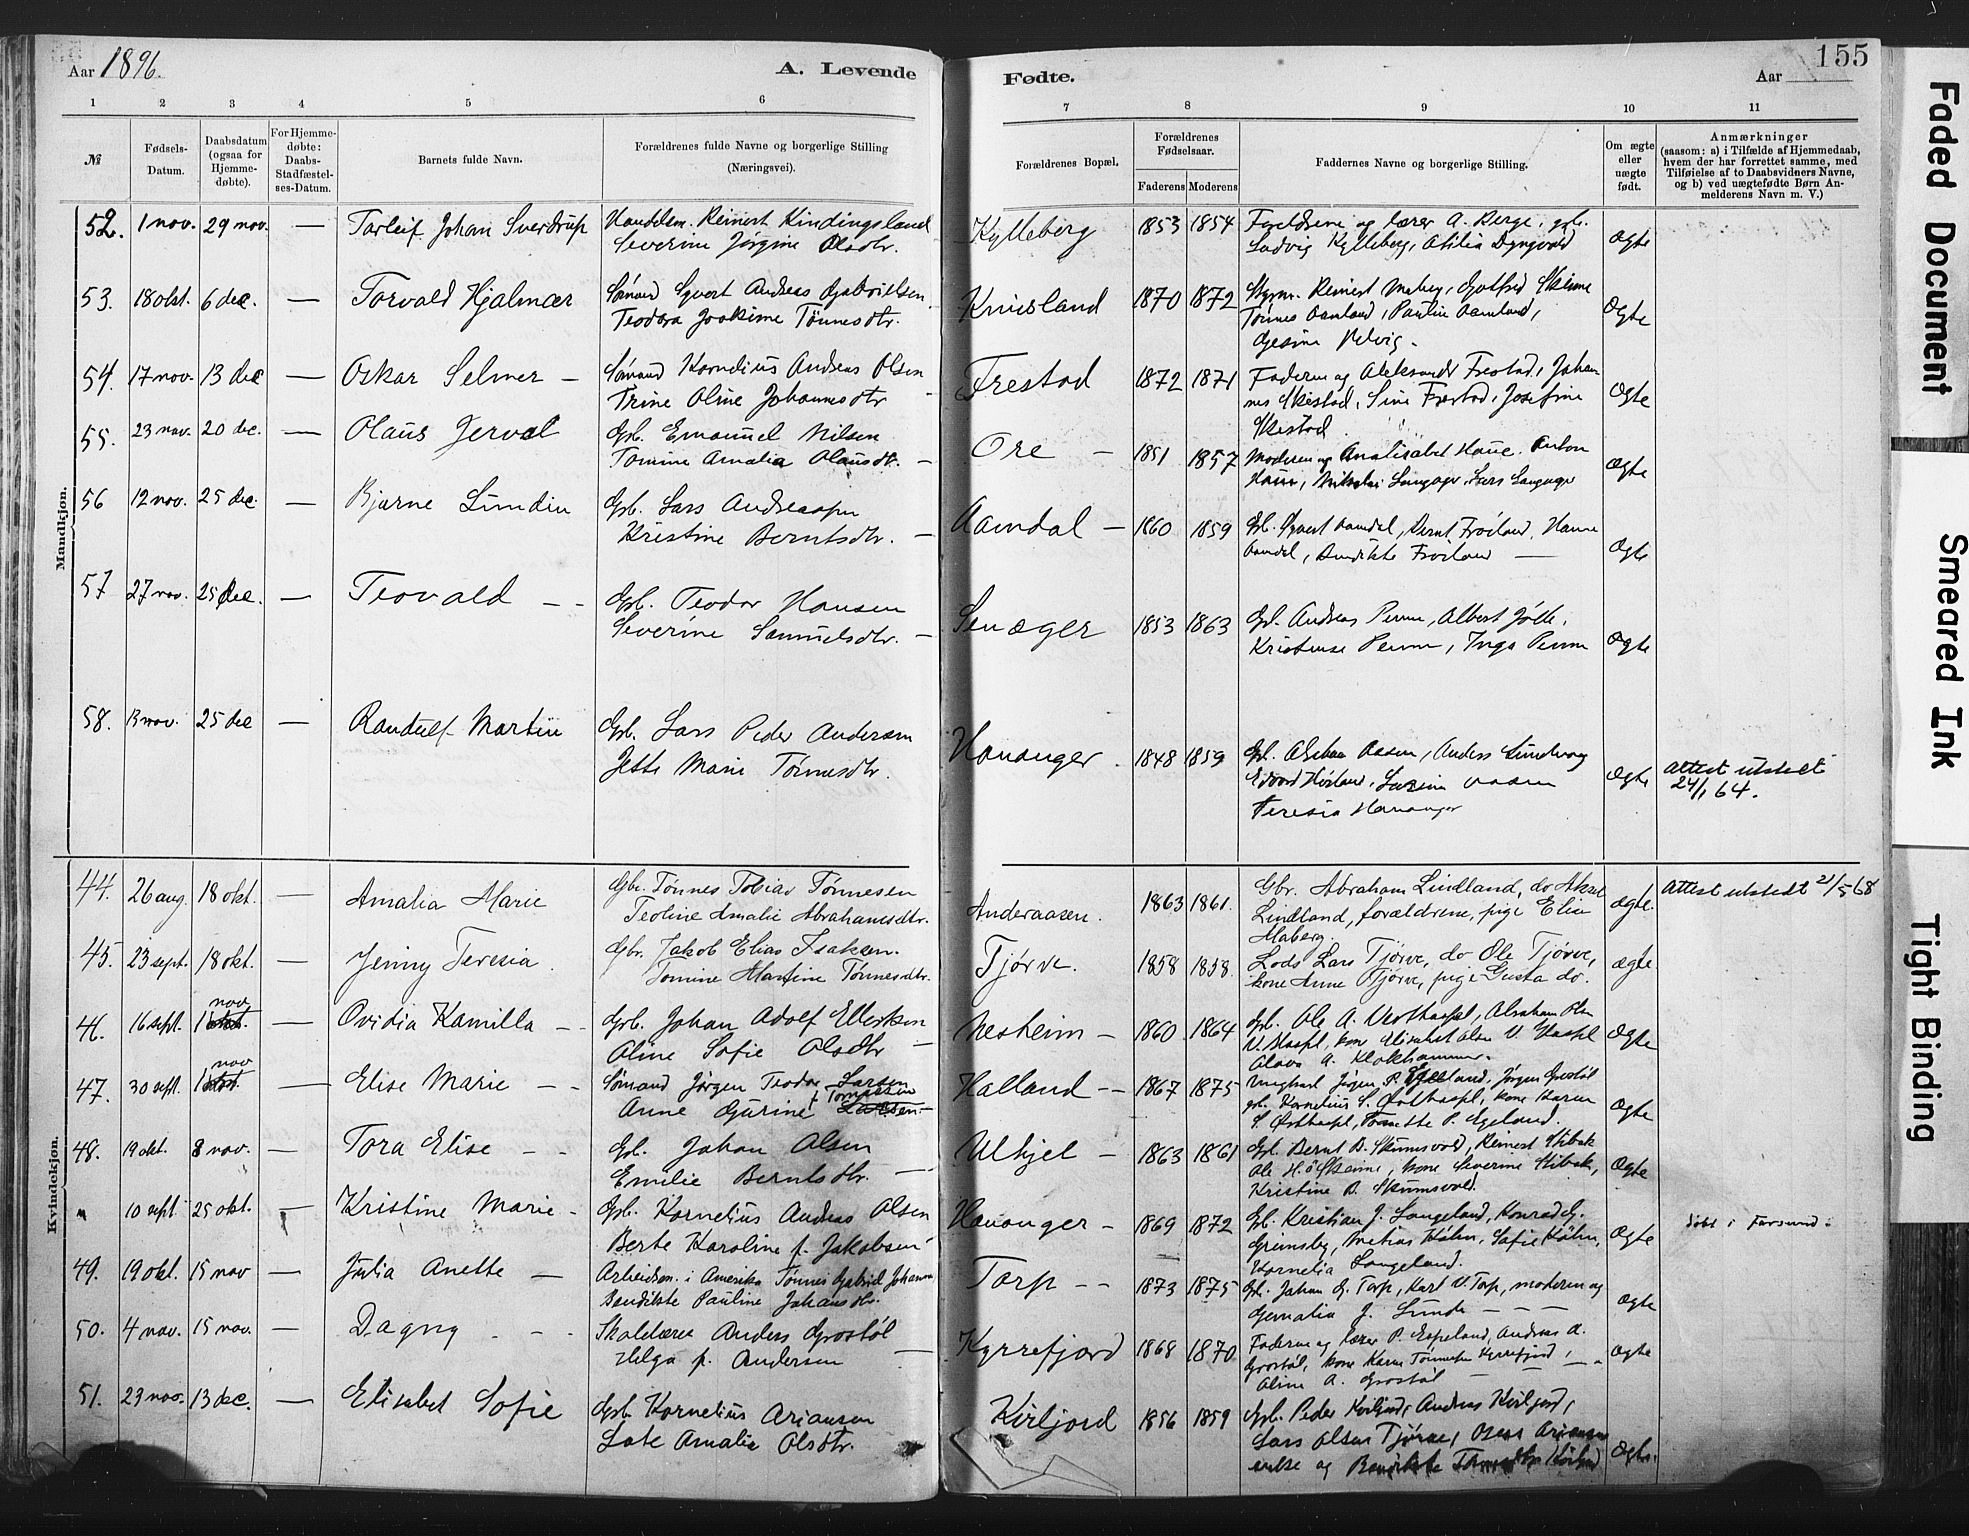 155
Aar 1896.
A. Levende Fødte.
Aar
1 2 3 4 5 6 7 8 9 10 11
№
Fødsels-Datum.
Daabsdatum (ogsaa for Hjemme-døbte).
For Hjemme-døbte: Daabs-Stadfæstel-ses-Datum.
Barnets fulde Navn.
Forældrenes fulde Navne og borgerlige Stilling (Næringsvei).
Forældrenes Bopæl.
Forældrenes Fødselsaar.
Faderens Moderens
Faddernes Navne og borgerlige Stilling.
Om ægte eller uægte født.
Anmærkninger
(saasom: a) i Tilfælde af Hjemmedaab,
hvem der har forrettet samme, med
Tilføielse af to Daabsvidners Navne,
og b) ved uægtefødte Børn An-
melderens Navn m. V.)
Mandkjøn.
52. 1 nov. 29 nov. — Torleif Johan Sverdrup Handelsm. Reinert Kindingsland Kylleberg 1853 1854 Forældrene og lærer A. Berge, gbr. Ægte
Severine Jørgine Olsdtr. Ludvig Kylleberg,
53. 18 okt. 6 dec. — Torvald Hjalmar Sømand Syvert Andreas Gabrielsen Knivsland 1870 1872 Styrm. Reinert Ægte
Teodora Joakime Tønnesdtr. Tønnes Aamland, Pauline Aamland,
Gesine
54. 17 nov. 13 dec — Oskar Selmer — Sømand Kornelius Andreas Olsen Frestad 1872 1871 Faderen og Aleksander Frestad, Johan Ægte
Trine Oline Johannesdtr nes Skestad, Sine Frestad, Josefine
Skestad
55. 23 nov. 20 dec. — Olaus Jerval Gbr. Emanuel Nilsen Ore — 1851 1857 Moderen og Analisabet Haue, Anton Ægte
Tomine Amalia Olausdt. —
56 12 nov. 25 dec. — Bjarne Lundin Gbr. Lars Andreassen Aamdal — 1860 1859 Gbr. Syvert Aamdal, Bernt Frøiland, Hanne Ægte
Kristine Berntsdtr. — Aamdal, Frøiland —
57 27 nov. 25 dec. — Teovald — - Gbr. Teodor Hansen 1853 1863 Gbr. Andreas Penne, Albert Jølle, Ægte
Severine Samuelsdtr. — Penne, Inga Penne
58. 13 nov. 25 dec — Randulf Martin Gbr. Lars Peder Andersen Hananger. 1848 1859 Ægte Attest utstedt
Jette Marie Tønnesdtr. 24/1 64.
Teresia Hananger
Kvindekjøn.
44. 26 aug. 18 okt. — Amalia Marie Gbr. Tønnes Tobias Tønnesen Anderaasen. 1863 1861. Gbr. Abraham Lindland, do Aksel ægte. Attest utstedt 2/5 68
Teoline Amalie Abrahamsdtr. Lindland, forældrene, pige Elise
Maberg.
45. 23 sept. 18 okt. — Jenny Teresia. Gbr. Jakob Elias Isaksen. Tjørve. 1858 1858. Lods Lars Tjørve, do Ole Tjørve, ægte.
Tomine Martine Tønnesdtr. kone Anne Tjørve, pige Gusta do.
46. 16 sept. 1 nov — Ovidia Kamilla — - Gbr. Johan Adolf Ellertsen Nesheim — 1860 1864 Gbr. Ole A. Vesthaspl, Abraham Olsen Ægte
Aline Sofie Olsdtr — V. Haspl, kone Elisabet Olsen V. Haspl
A. Klokhammer.
47. 30 sept. 1 nov — Elise Marie — - Sømand Jørgen Teodor Larsen Halland — - 1867 1875 Ungkarl Jørgen P. Egeland, Jørgen Grostøl Ægte
Anne Gurine f. Tomassen gbr. Kornelius S. Østhaspl, kone Karen
S. Østhaspl, Tomette P. Egeland.
48. 19 okt. 8 nov. — Tora Elise — - Gbr. Johan Olsen Ulhjel — 1863 1861 Gbr. Bernt B. Skumsvold, Reinert Stibak Ægte
Emilie Berntsdtr. — Ole H. Ø Skeime, kone Severine Stibak,
Kristine B. Skumsvold.
" 10 sept. 25 okt. — Kristine Marie - Gbr. Kornelius Andreas Olsen Hananger — 1869 1872 Gbr. Kristian J. Langeland, Konrad G. Ægte døbt i Farsund.
Berte Karoline f. Jakobsen Grimsby, Matias Høhn, Sofie Høhn,
Kornelia Langeland.
49. 19 okt. 15 nov — Julia Anette — Arbeidsm. i Amerika Tønnes Gabriel Johann Torp — - 1873 1875 Gbr. Johan G. Torp, Karl V. Torp, moderen og Ægte
Bendikte Pauline Johansdtr. J. Lunde — — —
50. 4 nov. 15 nov. — Dagny - - Skolelærer Anders Grostøl Kyrrefjord 1868 1870 Faderen og lærer P. Espeland, Andreas A. Ægte
Helga f. Andersen — Grostøl, kone Karen Tønnesen Kyrrefjord,
Aline A. Grostøl —
51. 23 nov. 13 dec. — Elisabet Sofie Gbr. Kornelius Ariansen Kviljord 1856 1859 Gbr. Peder Kviljord, Andreas Kviljord, Ægte.
Late Amalie Olsdtr. Lars Olsen Tjørve, Arians
enke og
Faded Document
Smeared Ink
Tight Binding